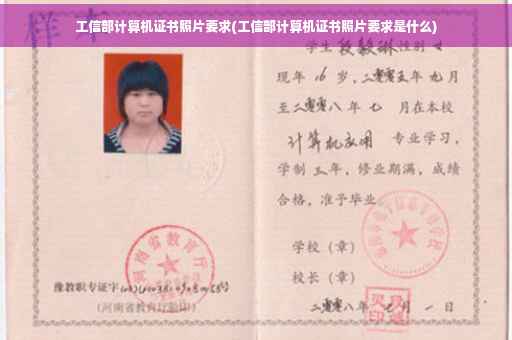 工信部计算机证书照片要求(工信部计算机证书照片要求是什么)
样本
学生段毅琳性别女
现年16岁，二零零五年九月
至二零零八年七月在本校
计算机应用 专业学习，
学制三年，修业期满，成绩
合格，准予毕业。
学校（章）
校长（章）
二零零八年七月一日
河南省教育厅
豫教职专证字
（河南省教育厅验印）